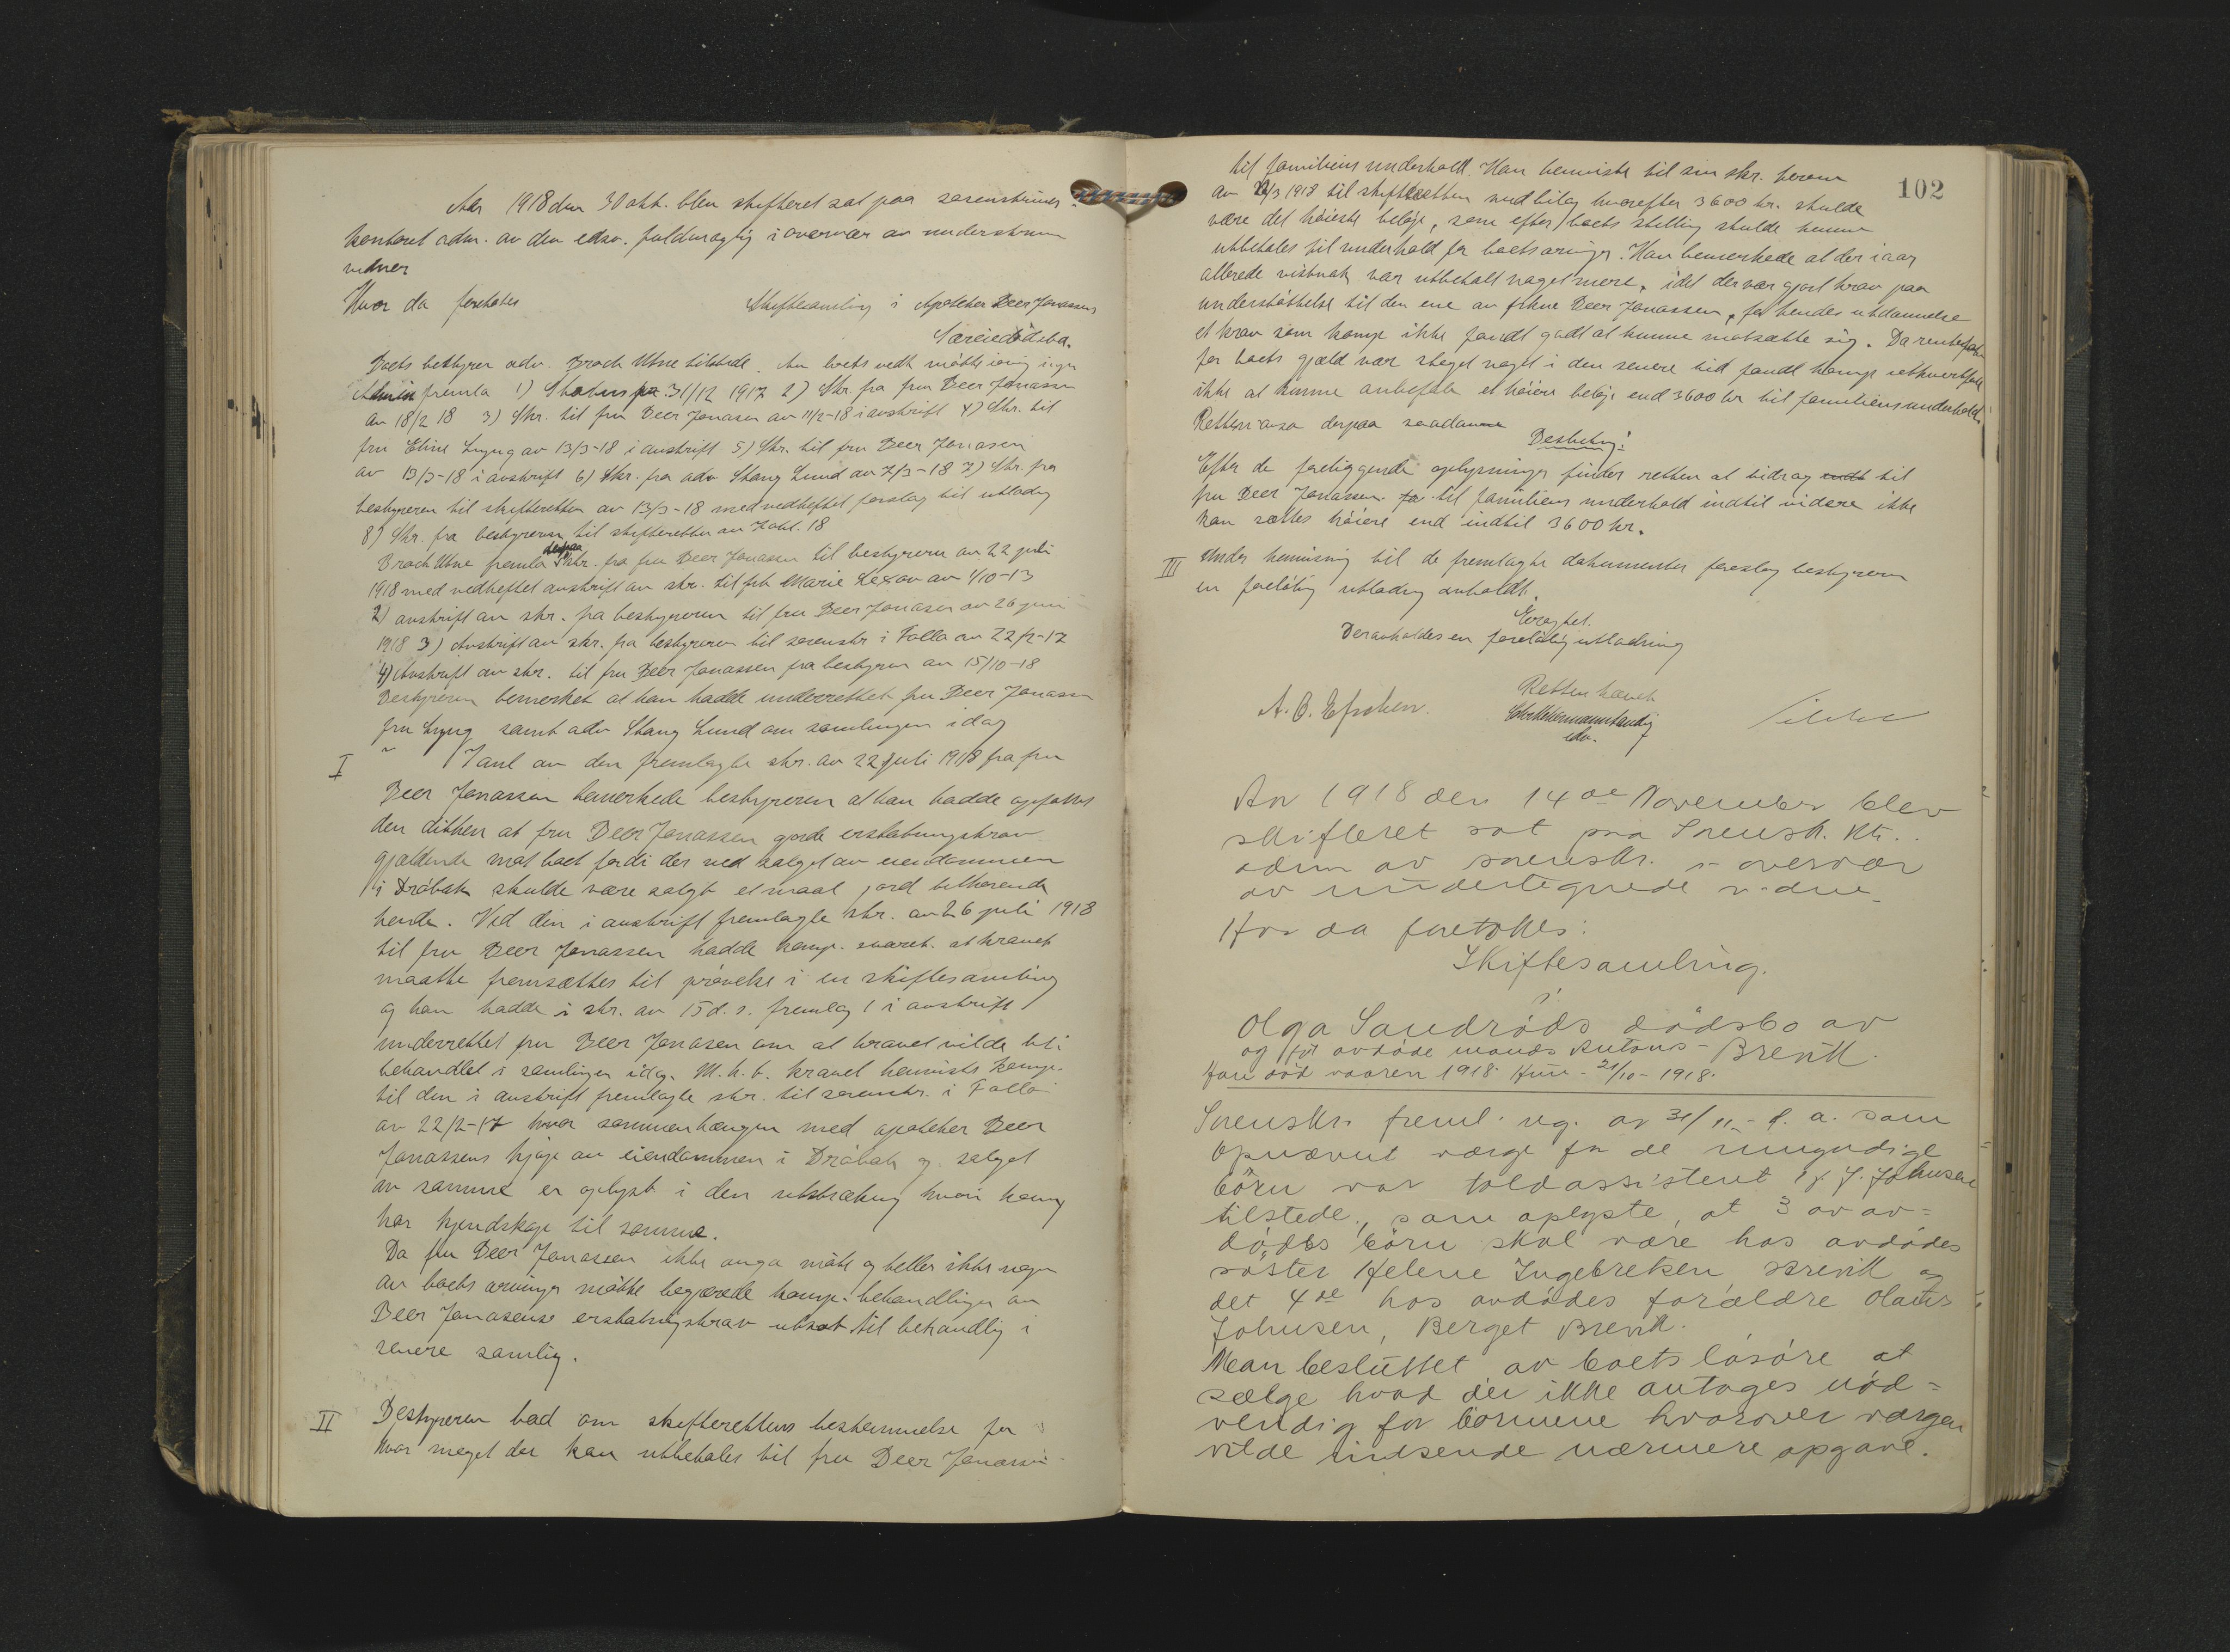 Aar 1918 den 30 okt. blev skifteret sat paa sorenskriver-
kontoret adm. av den edsv. fuldmægtig i overvær av underskrevne
vidner
Hvor da foretokes
Skiftesamling i Apoteker Deer Jonassens
Særeiedödsbo.
Boets bestyrer adv. Broch Utne tilstede. Av boets vedk. mötte iövrig ingen
fremla 1) Status pr 31/12 1917 2) Skr. fra fru Deer Jonassen
av 18/2 18 3) Skr. til fru Deer Jonasen av 11/2-18 i avskrift 4) Skr. til
fru Eline Lyng av 13/3-18 i avskrift 5) Skr. til fru Deer Jonasen
av 13/3-18 i avskrift 6) Skr. fra adv Stang Lund av 7/3-18 7) Skr. fra
bestyreren til skifteretten av 13/3-18 med vedheftet forslag til utlodng
8) Skr. fra bestyreren til skifteretten av 7 okt. 18
Broch Utne fremla derpaa Skr. fra fru Deer Jonassen til bestyreren av 22 juli
1918 med vedheftet avskrift av skr. til frk Marie Lexow av 1/10-13
2) avskrift av skr. fra bestyreren til fru Deer Jonasen av 26 juni
1918 3) Avskrift av skr. fra bestyreren til sorenskr i Follo av 22/2-17
4) Avskrift av skr. til fru Deer Jonassen fra bestyren av 15/10-18
Bestyreren bemerket at han hadde underrettet fru Deer Jonassen
fru Lyng samt adv Stang Lund om samlingen idag
I Ianl av den fremlagte skr. av 22 juli 1918 fra fru
Deer Jonassen bemerkede bestyreren at han hadde opfattet
den dithen at fru Deer Jonassen gjorde erstatningskrav
gjældende mot boet fordi der ved salget av eiendommen
i Dröbak skulde være solgt et maal jord tilhörende
hende. Ved den i avskrift fremlagte skr. av 26 juli 1918
til fru Deer Jonassen hadde komp. svaret at kravet
maatte fremsættes til prövelse i en skiftesamling
og han hadde i skr. av 15 d. s. fremlagt i avskrift
underrettet fru Deer Jonasen om at kravet vilde bli
behandlet i samlingen idag. M. h. t. kravet henviste komp.
til den i avskrift fremlagte skr. til sorenskr. i Follo
av 22/2-17 hvor sammenhængen med apoteker Deer
Jonassens kjöp av eiendommen i Dröbak og salget
av samme er oplyst i den utstrækning hvori komp
har kjendskap til samme.
Da fru Deer Jonassen ikke mötte og heller ikke nogen
av boets arvinger mötte begjærede komp. behandlingen av
Deer Jonasens erstatningskrav utsat til behandlig i
senere samlig.
II Bestyreren bad om skifterettens bestemmelse for
hvor meget der kan utbetales til fru Deer Jonassen
102
til familiens underhold. Han henviste til sin skr. herom
av 13/3 1918 til skifteretten med bilag hvorefter 3600 kr. skulde
være det höieste belöp, som efter boets stilling skulde kunne
utbetales til underhold for boets arvinger. Han bemerkede at der i aar
allerede vistnok var utbetalt noget mere, idet der var gjort krav paa
understöttelse til den ene av frkne Deer Jonassen, for hendes utdannelse
et krav som komp ikke fandt godt at kunne motsætte sig. Da rentefoten
for boets gjæld var steget noget i den senere tid fandt komp ethvertfald
ikke at kunne anbefale et höiere belöp end 3600 kr til familiens underhold.
Retten avsa derpaa saadan
Beslutng:
Efter de foreliggende oplysninger finder retten at bidrag til
fru Deer Jonassen til familiens underhold indtil videre ikke
kan sættes höiere end indtil 3600 kr.
III Under henvisning til de fremlagte dokumenter foreslog bestyreren
en forelöbig utlodng avholdt.
Eragtet.
Der avholdes en forelöbig utlodning
Retten hævet
A. B.
edsv.
Aar 1918 den 14de November blev
skifteret sat paa Sorensk. Ktr.
adm av sorenskr. i overvær
av undertegnede vidne
Hvor da foretokes:
Skiftesamling.
i
Olga Sandröds dödsbo av
og för avdöde mands Antons - Brevik.
Han död vaaren 1918. Hun - 21/10-1918.
Sorenskr. freml. reg. av 31/11 - d. a. som
opnævnt værge for de umyndige
börn var toldassistent J. Johnsen
tilstede, som oplyste, at 3 av av-
dödes börn skal være hos avdödes
söster Helene Ingebretsen Brevik og
det 4de hos avdödes forældre Olaus
Johnsen, Berget Brevik.
Man besluttet av boets lösöre at
sælge hvad der ikke antages nöd-
vendig for börnene hvorover værgen
vilde indsende nærmere opgave.